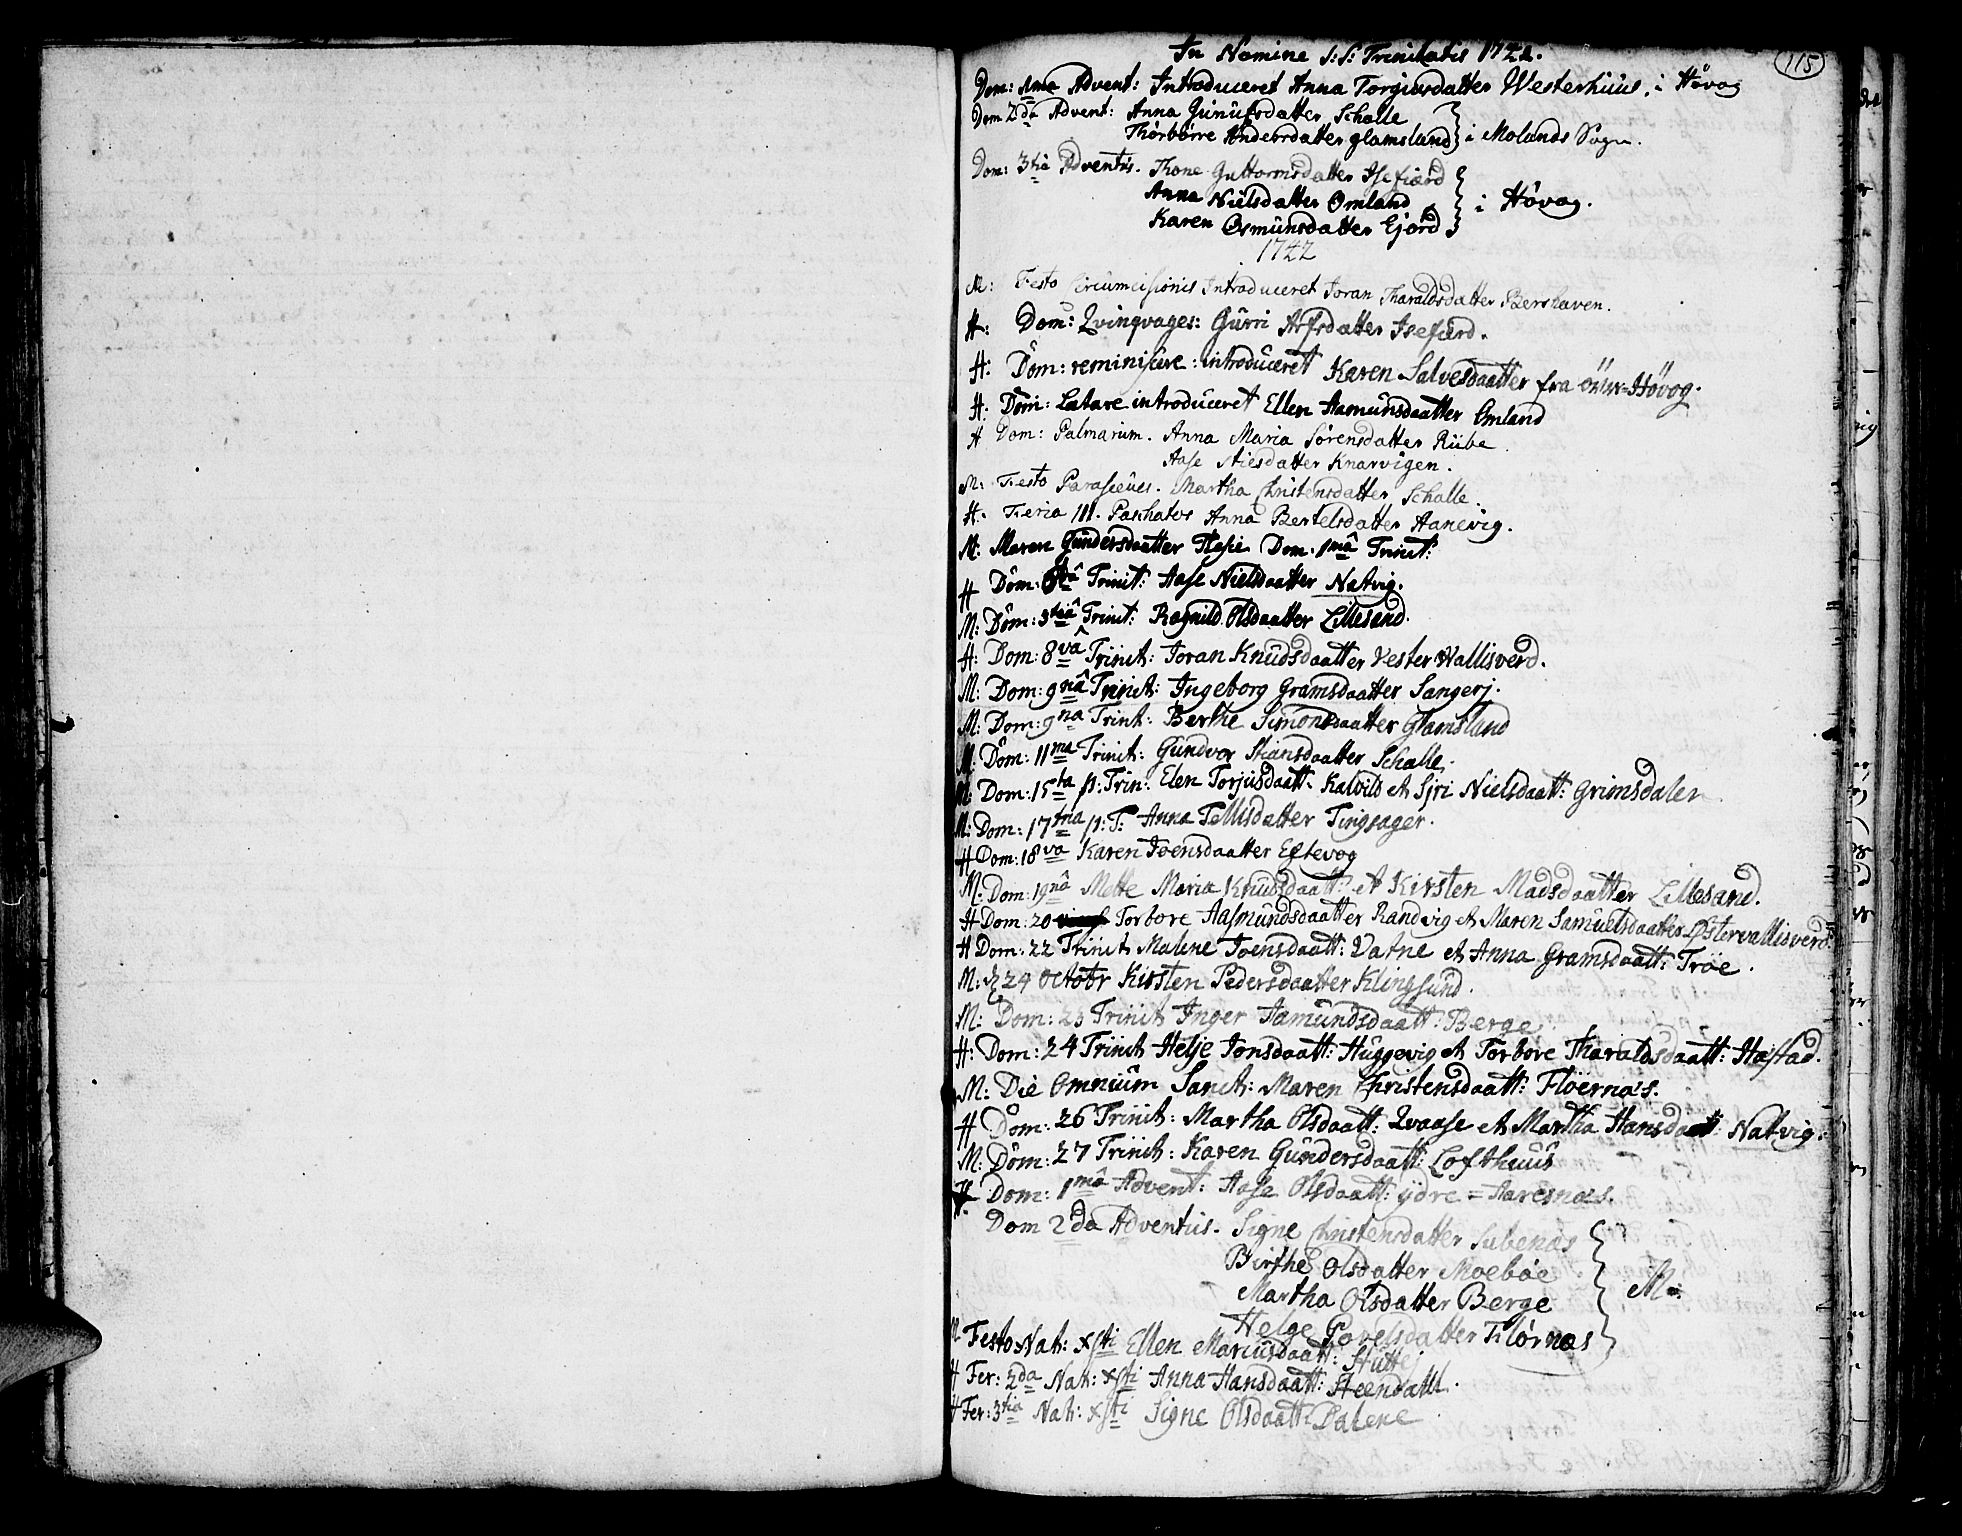 115
In Nomine S: S: Trinitatis 1742.
Dom: 1ma Advent: Introduceret Anna Torgiusdatter Westerhuus, i Høvog
Dom 2da Advent: Anna Gunufsdatter Schalle
Thorborre Anders­datter Glamsland } i Molands Sogn.
Dom: 3tia Adventis. Thone Guttormsdatter Isefiærd
Anna Nielsdatter Omland } i Høvog.
Karen Osmunsdatter Ejørd
1742
M: Festo Circumcisionis Introduceret Joran Tharaldsdatter Bershaven.
H: Dom: Qvinqvages: Gurri Arfsdatter Isefærd.
H: Dom: reminiscere: introduceret Karen Salvesdaatter fra Høvog.
H: Dom: Lætare introduceret Ellen Aamunsdaatter Omland
H Dom: Palmarum. Anna Maria Sørensdatter Rübe
Aase Stiesdatter Knarvigen.
M: Festo Parasceues. Martha Christensdatter Schalle.
H. Feria III. Paschatos Anna Bertelsdatter Aanevig.
M: Maren Gundersdaatter Dom. 1mâ Trinit:
H Dom: Trinit: Aase Nielsdaatter Natvig.
M: Dom: 3tiâ Trinit: Ragnild Olsdaatter Lillesand.
H: Dom: 8vâ Trinit: Joran Knudsdaatter Vester Wallisverd.
M: Dom: 9nâ Trinit: Ingeborg Gramsdaatter Sangerj.
M: Dom: 9na Trint: Berthe Simonsdaatter Glamsland
M: Dom: 11ma Trinit: Gundvor Stiansdaatter Schalle.
M: Dom: 15ta p: Trin: Elen Torjusdaatt: Kalvild et Sjri Nielsdaatt: Grimsdalen
M: Dom: 17tma p: T: Anna Tellisdatter Tingsager.
H Dom: 18va Karen Joensdaatter Eftevog
M: Dom: 19nâ Mette Maria Knudsdaatt: et Kirsten Madsdaatter Lillesand.
H Dom: 20 Torbore Aasmundsdaatter Randvig et Maren Samuelsdaatter Østervallisverd.
H Dom: 22 Trinit Malene Joensdaatt: Vatne et Anna Gramsdaatt: Trøe.
M: 24 Octobr Kirsten Pedersdaatter Klingsund.
M: Dom: 23 Trinit Inger Aamundsdaatt: Berge
H: Dom: 24 Trinit Helje Jonsdaatt: Huggevig et Torbore Tharaldsdaatt: Hæstad.
M: Die Omnium Sanct: Maren Christensdaatt: Fløernæs.
H Dom: 26 Trinit: Martha Olsdaatt: Qvaase et Martha Hansdaatt: Natvig.
M: Dom: 27 Trinit: Karen Gundersdaatt: Lofthuus
H. Dom: 1mâ Advent: Aase Olsdaatt: ydre = Aaresnæs.
Dom 2da Adventus. Signe Christensdatter Subenæs
Birthe Olsdatter Moebøe
Martha Olsdatter Berge } M:
Helge Govelsdatter Flørnæs
M Festo Nat: Xsti Ellen Mariusdaatt: Stuttej
H Fer: 2da Nat: Xsti Anna Hansdaatt: Steendall.
H Fer: 3tia Nat: Xsti Signe Olsdaatt: Dalene